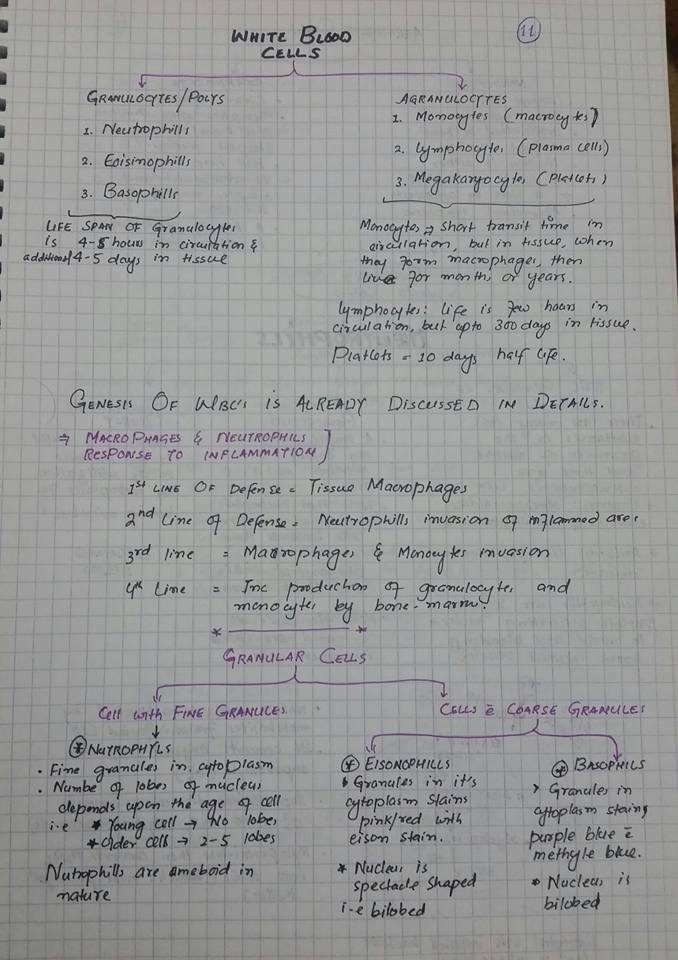 11
WHITE BLOOD
CELLS
GRANULOCYTES/POLYS
1. Neutrophills
2. Eoisinophills
3. Basophills
LIFE SPAN OF Granulocytes
is 4-8 hours in circulation &
additional 4-5 days in tissue
AGRANULOCYTES
1. Monocytes (macrocytes)
2. Lymphocytes (Plasma cells)
3. Megakaryocytes (Platlets)
Monocytes → short transit time in
circulation, but in tissue, when
they form macrophages, then
live for months or years.
Lymphocytes: Life is few hours in
circulation, but upto 300 days in tissue.
Platlets = 10 days half life.
GENESIS OF WBC's IS ALREADY DISCUSSED IN DETAILS.
⇒ MACROPHAGES & NEUTROPHILS
RESPONSE TO INFLAMMATION]
1st LINE OF Defense = Tissue Macrophages
2nd Line of Defense = Neutrophills invasion of inflammed area
3rd line = Macrophages & Monocytes invasion
4th Line = Inc production of granulocytes and
monocytes by bone-marrow.
* *
GRANULAR CELLS
Cell with FINE GRANULES
NUTROPHYLS
• Fine granules in cytoplasm
• Numbe of lobes of nucleus
depends upon the age of cell
i.e * Young cell → No lobes
* Older cell → 2-5 lobes
Nutrophills are ameboid in
nature
CELLS c̄ COARSE GRANULES
EISONOPHILLS
Granules in it's
cytoplasm stains
pink/red with
eison stain.
* Nucleus is
spectacle shaped
i-e bilobed
BASOPHILS
> Granules in
cytoplasm stains
purple blue c̄
methyle blue.
• Nucleus is
bilobed